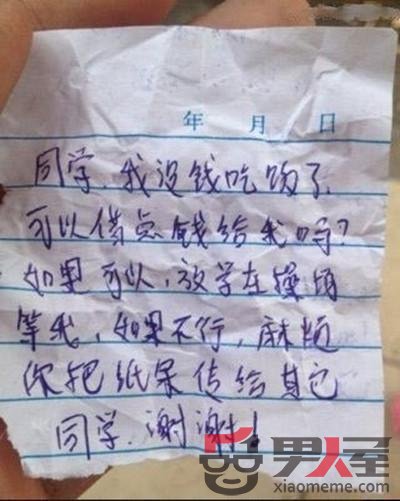 年 月 日
同学，我没钱吃饭了，
可以借点钱给我吗？
如果可以，放学在操场
等我，如果不行，麻烦
你把纸条传给其它
同学，谢谢！
男人屋
xiaomeme.com